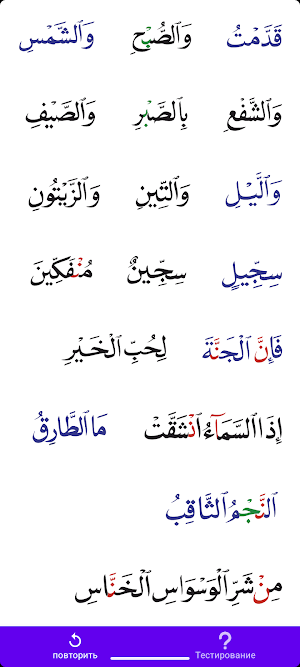 قَدَّمْتُ وَٱلصُّبْحِ وَٱلشَّمْسِ
وَٱلشَّفْعِ بِٱلصَّبْرِ وَٱلصَّيْفِ
وَٱلَّيْلِ وَٱلتِّينِ وَٱلزَّيْتُونِ
سِجِّيلٍ سِجِّينٌ مُنْفَكِّينَ
فَإِنَّ ٱلْجَنَّةَ لِحُبِّ ٱلْخَيْرِ
إِذَا ٱلسَّمَآءُ ٱنْشَقَّتْ مَا ٱلطَّارِقُ
ٱلنَّجْمُ ٱلثَّاقِبُ
مِنْ شَرِّ ٱلْوَسْوَاسِ ٱلْخَنَّاسِ
повторить Тестирование